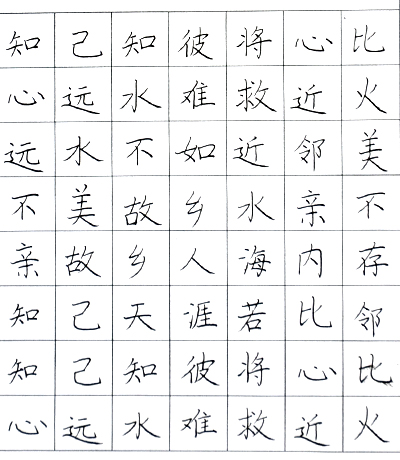 知己知彼将心比
心远水难救近火
远水不如近邻美
不美故乡水亲不
亲故乡人海内存
知己天涯若比邻
知己知彼将心比
心远水难救近火